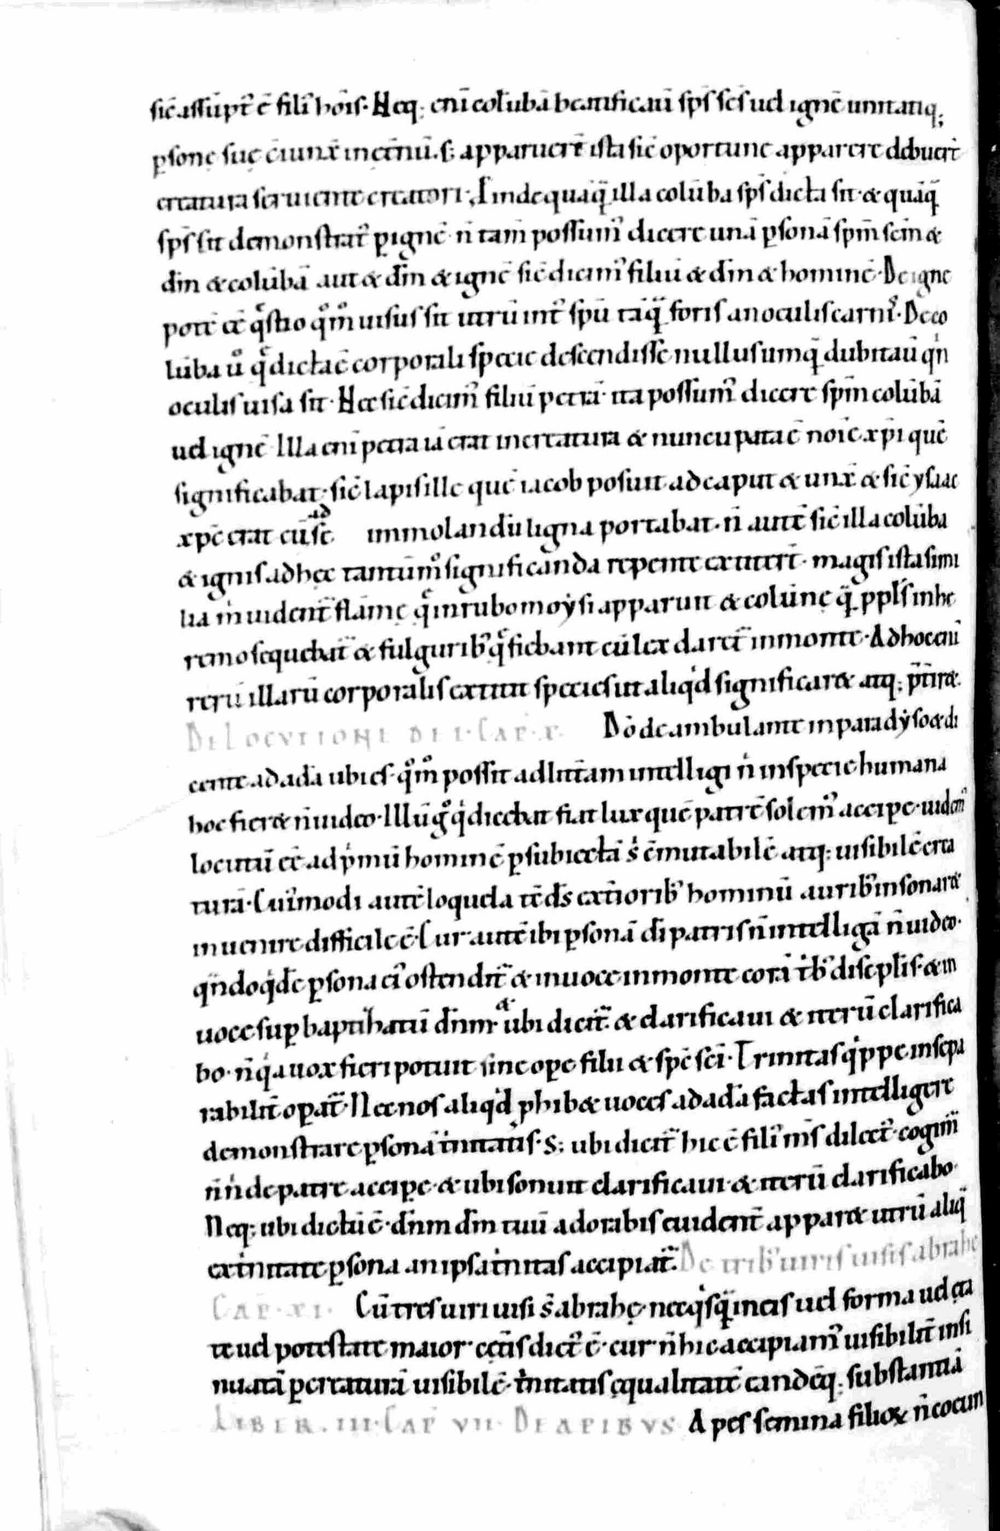 sic̄ assūpt᷒ ē fili᷒ hoīs· Neq; enī colūbā beatificauı sp̄s sc̄s uel ignē unitatiq;
ꝑsonę suę c̄iunx̄ in et̄nū. s; apparuer̄t ista sic̄ oportune apparere debuer̄t
creatura seruiente creatori; Inde quāq̄ illa colūba sp̄s dicta sit & quāq̄
sp̄s sit demonstrat᷒ ꝑ ignē n̄ tam̄ possum᷒ dicere unā ꝑsonā sp̄m sc̄m &
dm̄ & colūbā aut & dm̄ & ignē sic̄ dicim᷒ filiū & dm̄ & hominē· De igne
potē cē q̄stio qm̄ uisus sit utrū int᷒ spū tāq̄ foris an oculis carnı᷒· De co
lūba u̇ q̄ dicta ē corporali specie descendisse nullus umq̄ dubitau q̇n
oculis uisa sit· Nec sic̄ dicim᷒ filiū petrā· ita possum᷒ dicere sp̄m colūbā
uel ignē Illa enı̄ petra iā erat in creatura & nuncupata ē noıē xp̄i quē
significabat; sic̄ lapis ille quē iacob posuit ad caput & unx̄ & sic̄ ysaac
xp̄c erat cū sc̄ ad immolandū ligna portabat· n̄ autē sic̄ illa colūba
& ignis ad hęc tantūm᷒ significanda repente extiter̄t· magis ista simi
lia m̄ uident̄ flāmę q̄ in rubo moẏsi apparuit & colūnę q̄ ppl̄s in he
remo sequebat̄ & fulgurib᷒ q̄ fiebant cū lex daret̄ in monte· Ad hoc enı̄
rerū illarū corporalis extitit species ut aliq̇d significar& atq; p̄tir&.
DE LOCUTIONE DEI· CAP̄· X· Dō deambulante in paradẏso & di
cente ad adā ubi es· qm̄ possit ad litt̄am intelligi n̄ in specie humana
hoc fier& n̄ uideo· Illū g᷒ q̇ dicebat fiat lux quē patrē solem᷒ accipe· uidem᷒
locutū cē ad p̄mū hominē ꝑ subiectā s᷒ c̄mutabilē atq; uisibilē crea
turā· Cui᷒modi autē loquela tē ds̄ ext̄iorib᷒ hominū aurib᷒ insonar&
inuenire difficile ē· Cur autē ibi ꝑsonā dı̄ patris n̄ intelligā n̄ uideo·
qn̄doq̇dē ꝑsona ei᷒ ostendit̄ & in uoce in monte corā trib᷒ discp̄lis· & in
uoce sup̄ baptizatū dn̄m & ubi dicit̄· & clarificaui & iterū clarifica
bo· n̄ q̇a uox fieri potuit sine ope filii & sp̄c sc̄ı· Trinitas q̇ppe insepa
rabilit̄ opat̄· Nec nos aliq̇d phib& uoces ad adā factas intelligere
demonstrare ꝑsonā t̄nitatis· S; ubi dicit̄ hic ē fili᷒ m̄s dilect᷒· cogim᷒
n̄ n̄ de patre accipe· & ubi sonuit clarificaui· & iterū clarificabo·
Neq; ubi dictū ē· dn̄m dm̄ tuū adorabis euident̄ appar& utrū aliq̄
ex t̄nitate ꝑsona an ipsa t̄nitas accipiat̄· De trib᷒ uiris uisis abrahę
CAP̄· XI· Cū tres uiri uisi s̄ abrahę· nec q̇sq̄ in eis uel forma uel ęta
te uel potestate maior· cęt̄is dict᷒ ē· cur n̄ hic accipiam᷒ uisibilit̄ insi
nuatā ꝑ creaturā uisibilē· t̄nitatis ęqualitatē eandēq; substantiā
LIBER· III· CAP̄ VII· DE APIBUS Apes semina filioꝝ n̄ cocun